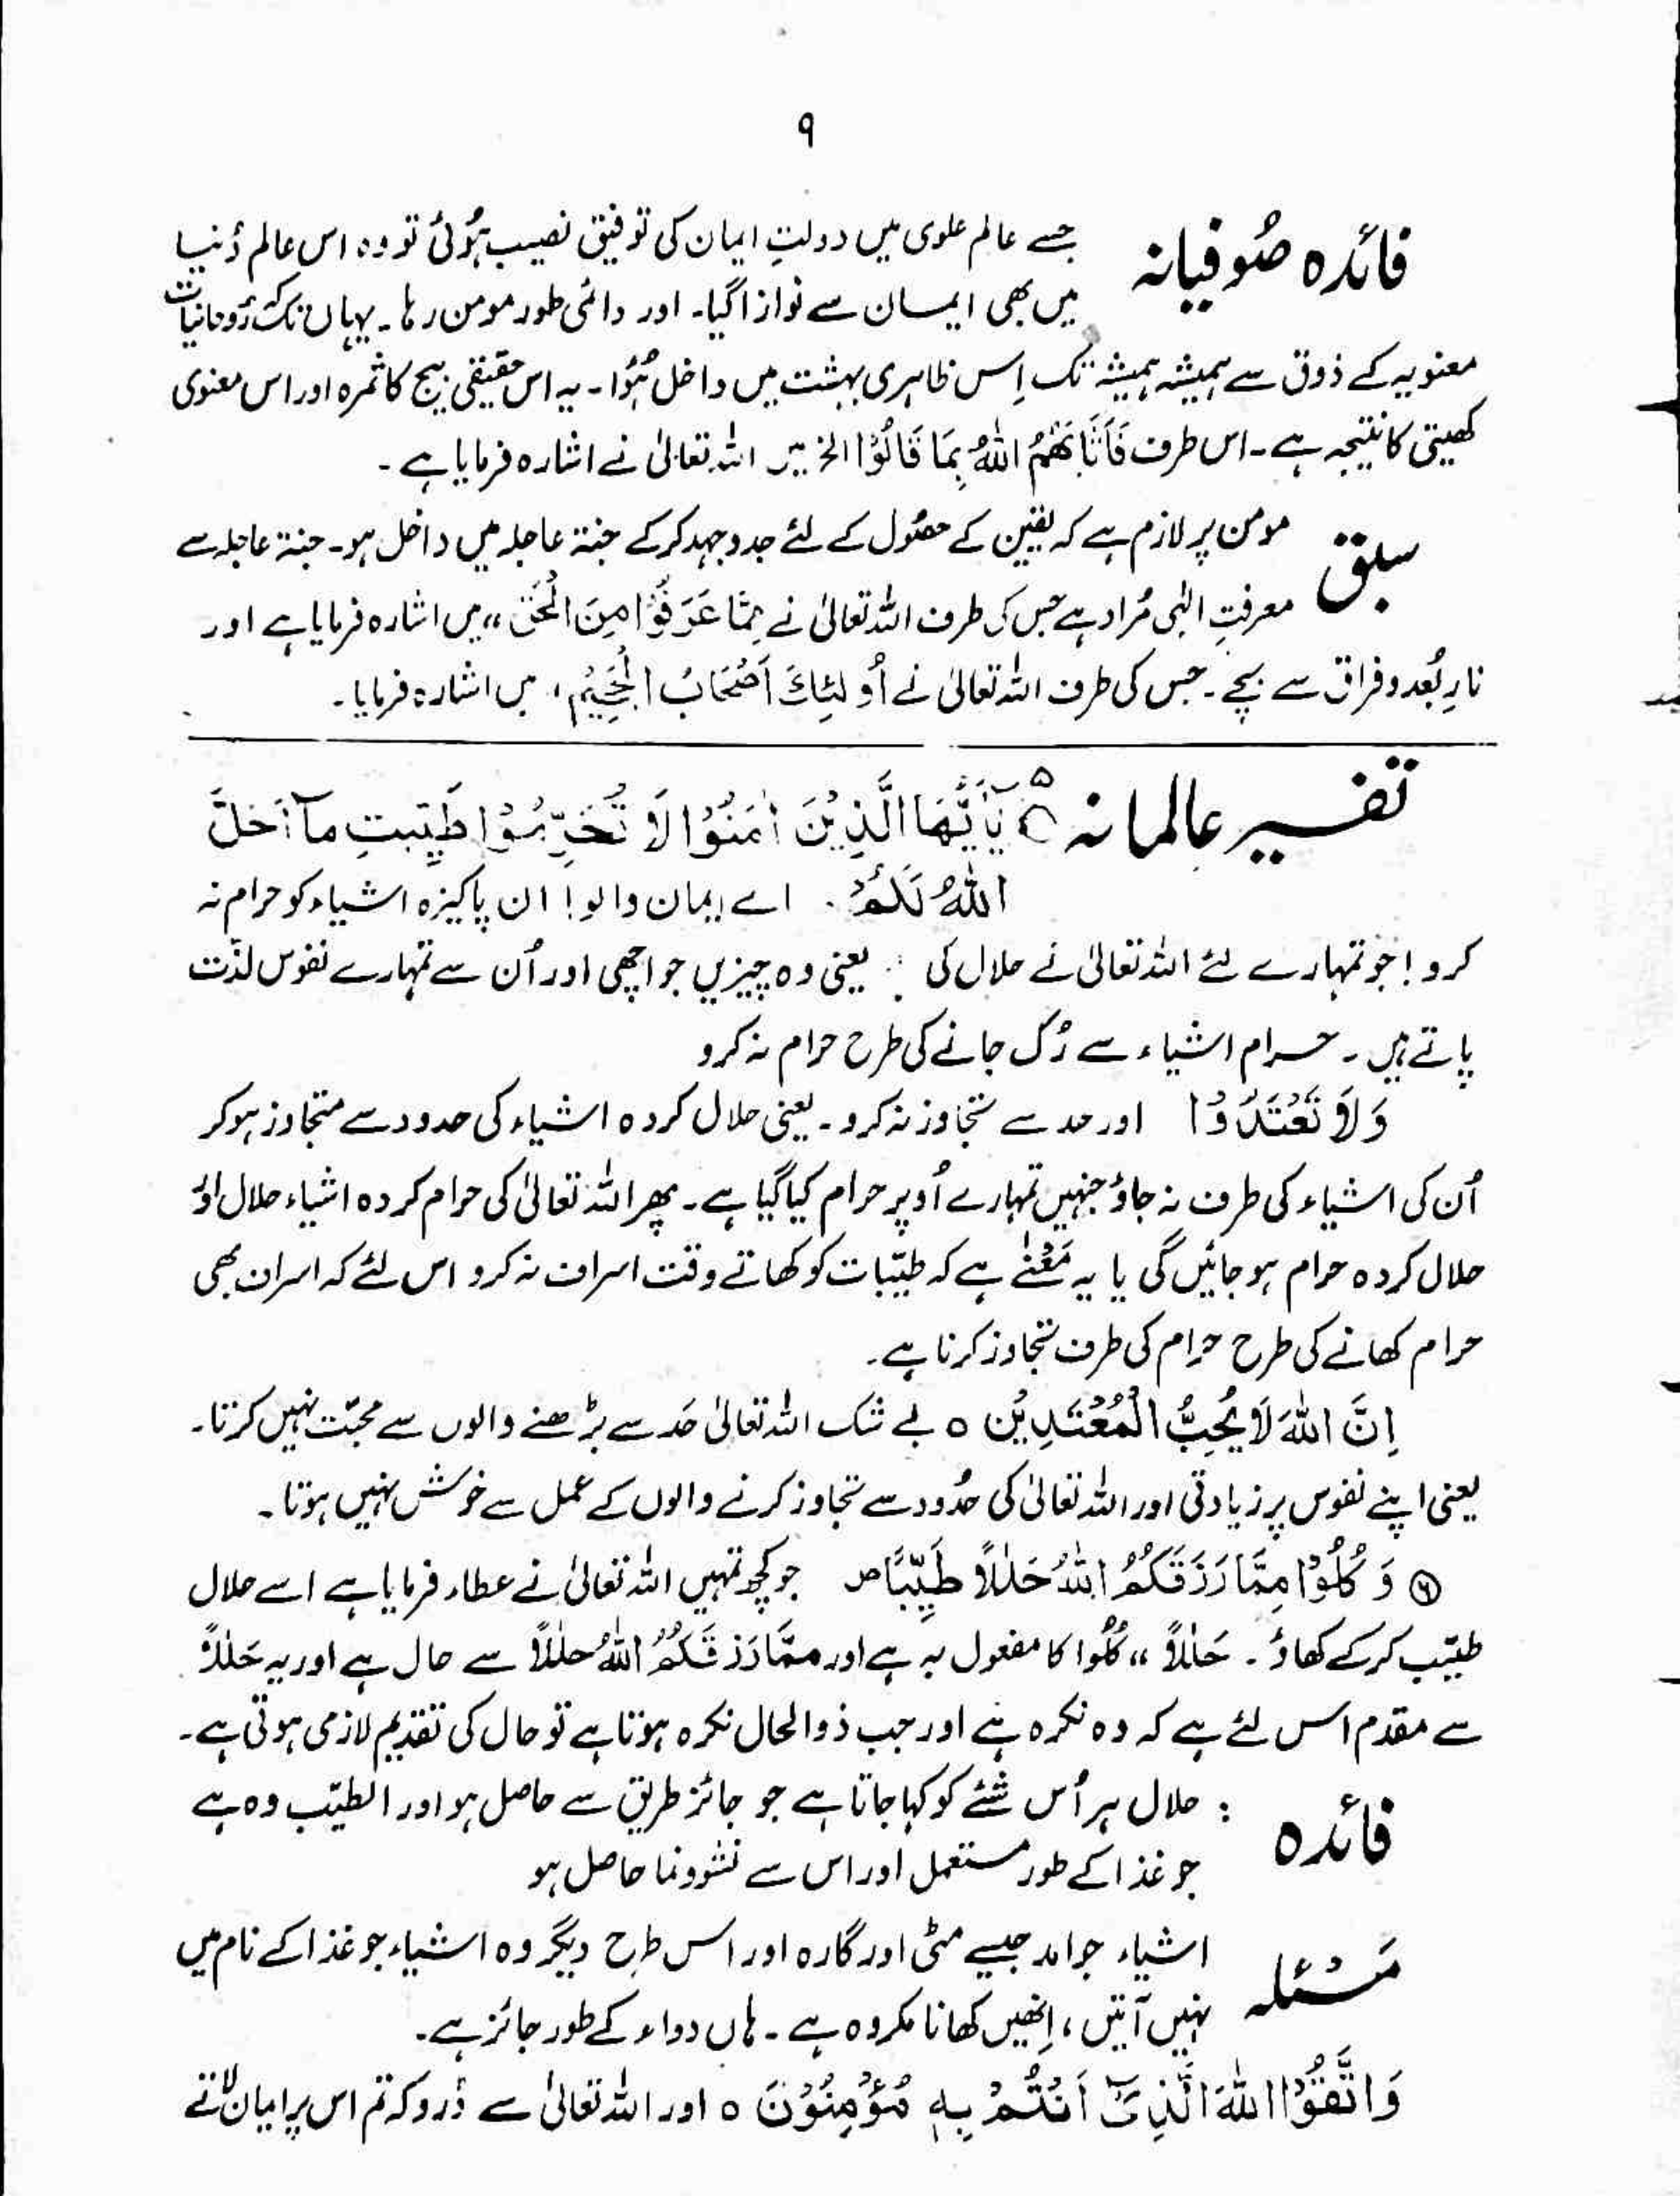 ۹
فائدہ صُوفیانہ جسے عالم علوی میں دولتِ ایمان کی توفیق نصیب ہُوئی تو وہ اس عالم دُنیا
میں بھی ایمان سے نوازا گیا۔ اور دائمی طور مومن رہا۔ یہاں تک کہ رُوحانیات
معنویہ کے ذوق سے ہمیشہ ہمیشہ تک اِس ظاہری بہشت میں داخل ہُوا۔ یہ اس حقیقی بیج کا ثمرہ اور اس معنوی
کھیتی کا نتیجہ ہے۔ اس طرف فَاَثَابَهُمُ اللّٰهُ بِمَا قَالُوْا الخ میں اللہ تعالیٰ نے اشارہ فرمایا ہے۔
سبق مومن پر لازم ہے کہ یقین کے حصُول کے لئے جدوجہد کرکے جنۃ عاجلہ میں داخل ہو۔ جنۃ عاجلہ سے
معرفتِ الٰہی مُراد ہے جس کی طرف اللہ تعالیٰ نے مِمَّا عَرَفُوْا مِنَ الْحَقِّ ،، میں اشارہ فرمایا ہے اور
نارِ بُعد و فراق سے بچے۔ جس کی طرف اللہ تعالیٰ نے اُولٰئِكَ اَصْحَابُ الْجَحِيْمِ ، میں اشارہ فرمایا۔
تفسیر عالمانہ ۵ یٰۤاَیُّهَا الَّذِیْنَ اٰمَنُوْا لَا تُحَرِّمُوْا طَیِّبٰتِ مَاۤ اَحَلَّ
اللّٰهُ لَكُمْ۔ اے ایمان والو! ان پاکیزہ اشیاء کو حرام نہ
کرو! جو تمہارے لئے اللہ تعالیٰ نے حلال کی : یعنی وہ چیزیں جو اچھی اور اُن سے تمہارے نفوس لذّت
پاتے ہیں۔ حرام اشیاء سے رُک جانے کی طرح حرام نہ کرو
وَلَا تَعْتَدُوْا اور حد سے تجاوز نہ کرو۔ یعنی حلال کردہ اشیاء کی حدود سے متجاوز ہو کر
اُن کی اشیاء کی طرف نہ جاؤ جنہیں تمہارے اُوپر حرام کیا گیا ہے۔ پھر اللہ تعالیٰ کی حرام کردہ اشیاء حلال اور
حلال کردہ حرام ہو جائیں گی یا یہ مَعْنٰے ہے کہ طیّبات کو کھاتے وقت اسراف نہ کرو اس لئے کہ اسراف بھی
حرام کھانے کی طرح حرام کی طرف تجاوز کرنا ہے۔
اِنَّ اللّٰهَ لَا یُحِبُّ الْمُعْتَدِیْنَ ۝ بے شک اللہ تعالیٰ حَد سے بڑھنے والوں سے محبّت نہیں کرتا۔
یعنی اپنے نفوس پر زیادتی اور اللہ تعالیٰ کی حُدود سے تجاوز کرنے والوں کے عمل سے خوش نہیں ہوتا۔
۶ وَ كُلُوْا مِمَّا رَزَقَكُمُ اللّٰهُ حَلٰلًا طَیِّبًا ص جو کچھ تمہیں اللہ تعالیٰ نے عطاء فرمایا ہے اسے حلال
طیّب کرکے کھاؤ۔ حَلٰلًا ،، کُلُوا کا مفعول بہ ہے اور مِمَّا رَزَقَكُمُ اللّٰهُ حلٰلًا سے حال ہے اور یہ حَلٰلًا
سے مقدم اس لئے ہے کہ وہ نکرہ ہے اور جب ذوالحال نکرہ ہوتا ہے تو حال کی تقدیم لازمی ہوتی ہے۔
فائدہ : حلال ہر اُس شَئے کو کہا جاتا ہے جو جائز طریق سے حاصل ہو اور الطیّب وہ ہے
جو غذا کے طور مستعمل اور اس سے نشوونما حاصل ہو
مَسْئلہ اشیاء جوامد جیسے مٹی اور گارہ اور اس طرح دیگر وہ اشیاء جو غذا کے نام میں
نہیں آتیں، اِنھیں کھانا مکروہ ہے۔ ہاں دواء کے طور جائز ہے۔
وَاتَّقُوا اللّٰهَ الَّذِیْۤ اَنْتُمْ بِهٖ مُؤْمِنُوْنَ ۝ اور اللہ تعالیٰ سے ڈرو کہ تم اس پر ایمان لاتے